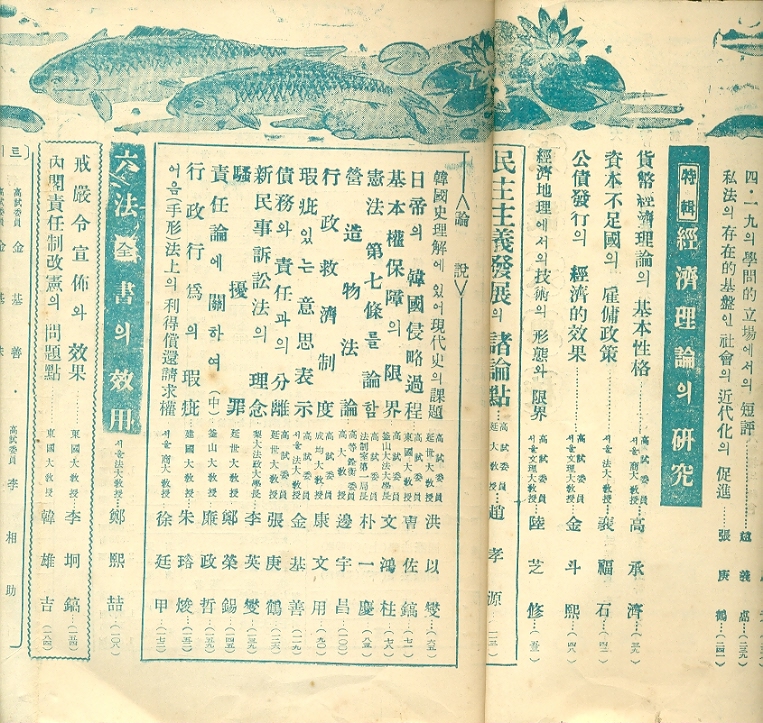 四·一九의 學問的 立場에서의 短評
私法의 存在的 基盤인 社會의 近代化의 促進……張庚鶴…(二四一)
特輯 經濟理論의 硏究
貨幣經濟理論의 基本性格 高試委員 서울商大敎授…高承濟…(三九)
資本不足國의 雇傭政策 서울法大敎授…裵福石…(四二)
公債發行의 經濟的效果 高試委員 서울文理大敎授…金斗熙…(四八)
經濟地理에서의 技術의 形態와 限界 高試委員 서울文理大敎授…陸芝修…(五一)
民主主義發展의 諸論點 高試委員 延大敎授…趙孝源
論說
韓國史理解에 있어 現代史의 課題 高試委員 延世大敎授…洪以燮…(六五)
日帝의 韓國侵略過程 高試委員 東國大敎授…曺佐鎬…(七一)
基本權保障의 限界 釜山大法大學長…文鴻柱…(七八)
憲法第七條를 論함 法制室第一局長…朴一慶…(八五)
營造物法論 高等銓衡委員 高大敎授…邊宇昌…(一〇〇)
行政救濟制度 高試委員 成均大敎授…康文用…(九〇)
瑕疵있는 意思表示 高試委員 서울法大敎授…金基善…(一一九)
債務와 責任과의 分離 高試委員 延世大敎授…張庚鶴…(一三六)
新民事訴訟法의 理念 梨大法政大學長…李英燮…(一三九)
騷擾罪 延世大敎授…鄭榮錫…(一四五)
責任論에 關하여(中) 釜山大敎授…廉政哲…(一五九)
行政行爲의 瑕疵 建國大敎授…朱瑢焌…(一五〇)
어음(手形)法上의 利得償還請求權 서울商大敎授…徐廷甲…(一七二)
六法全書의 效用 서울法大敎授…鄭熙喆…(一〇八)
戒嚴令宣佈와 效果 東國大敎授…李坰鎬…(一五四)
內閣責任制改憲의 問題點 東國大敎授…韓雄吉…(一八四)
高試委員 李相助
高試委員 金基善·